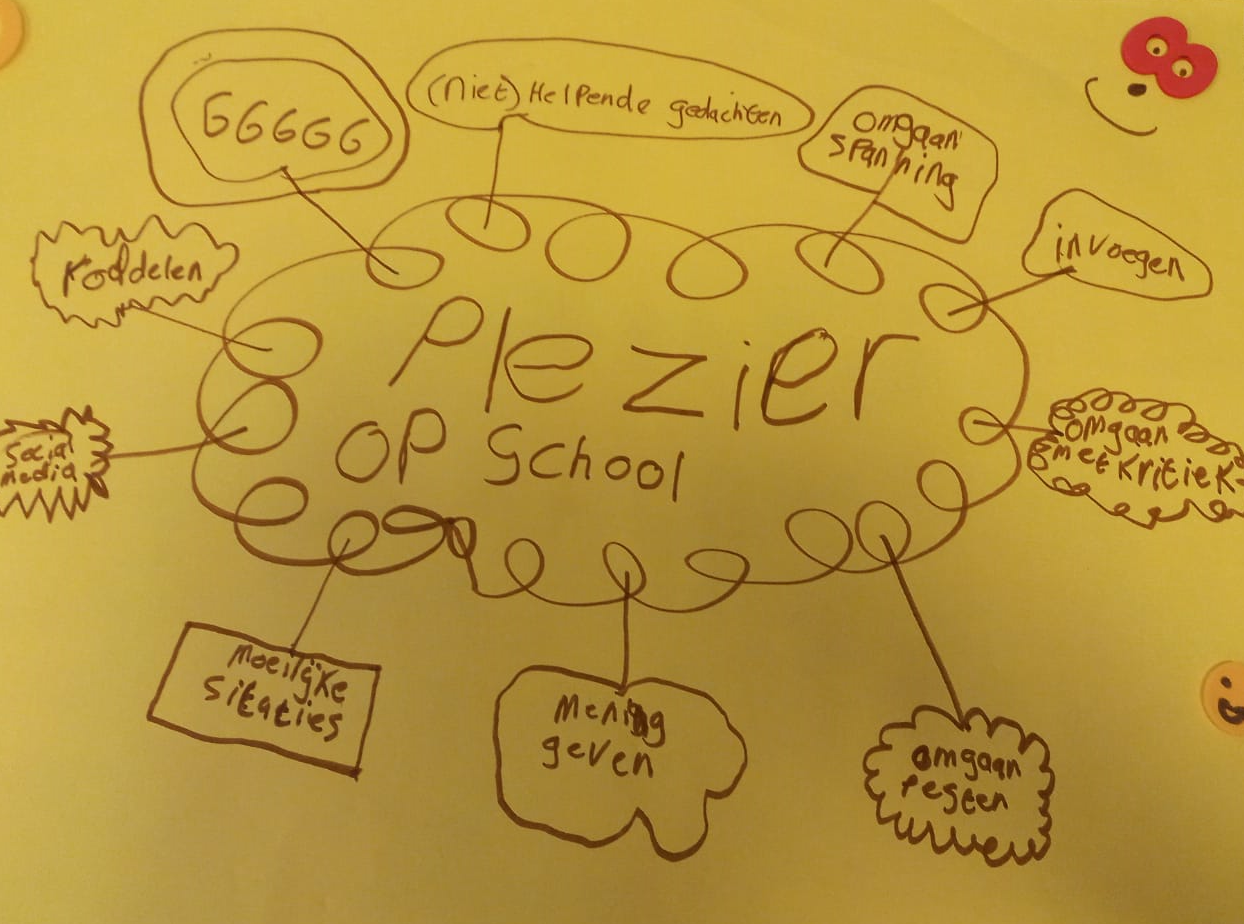 GGGGG
(niet) Helpende gedachten
omgaan
spanning
invoegen
Roddelen
Plezier
op School
social
media
omgaan
met kritiek
Moeilijke
sitaties
Mening
geven
omgaan
Pesten